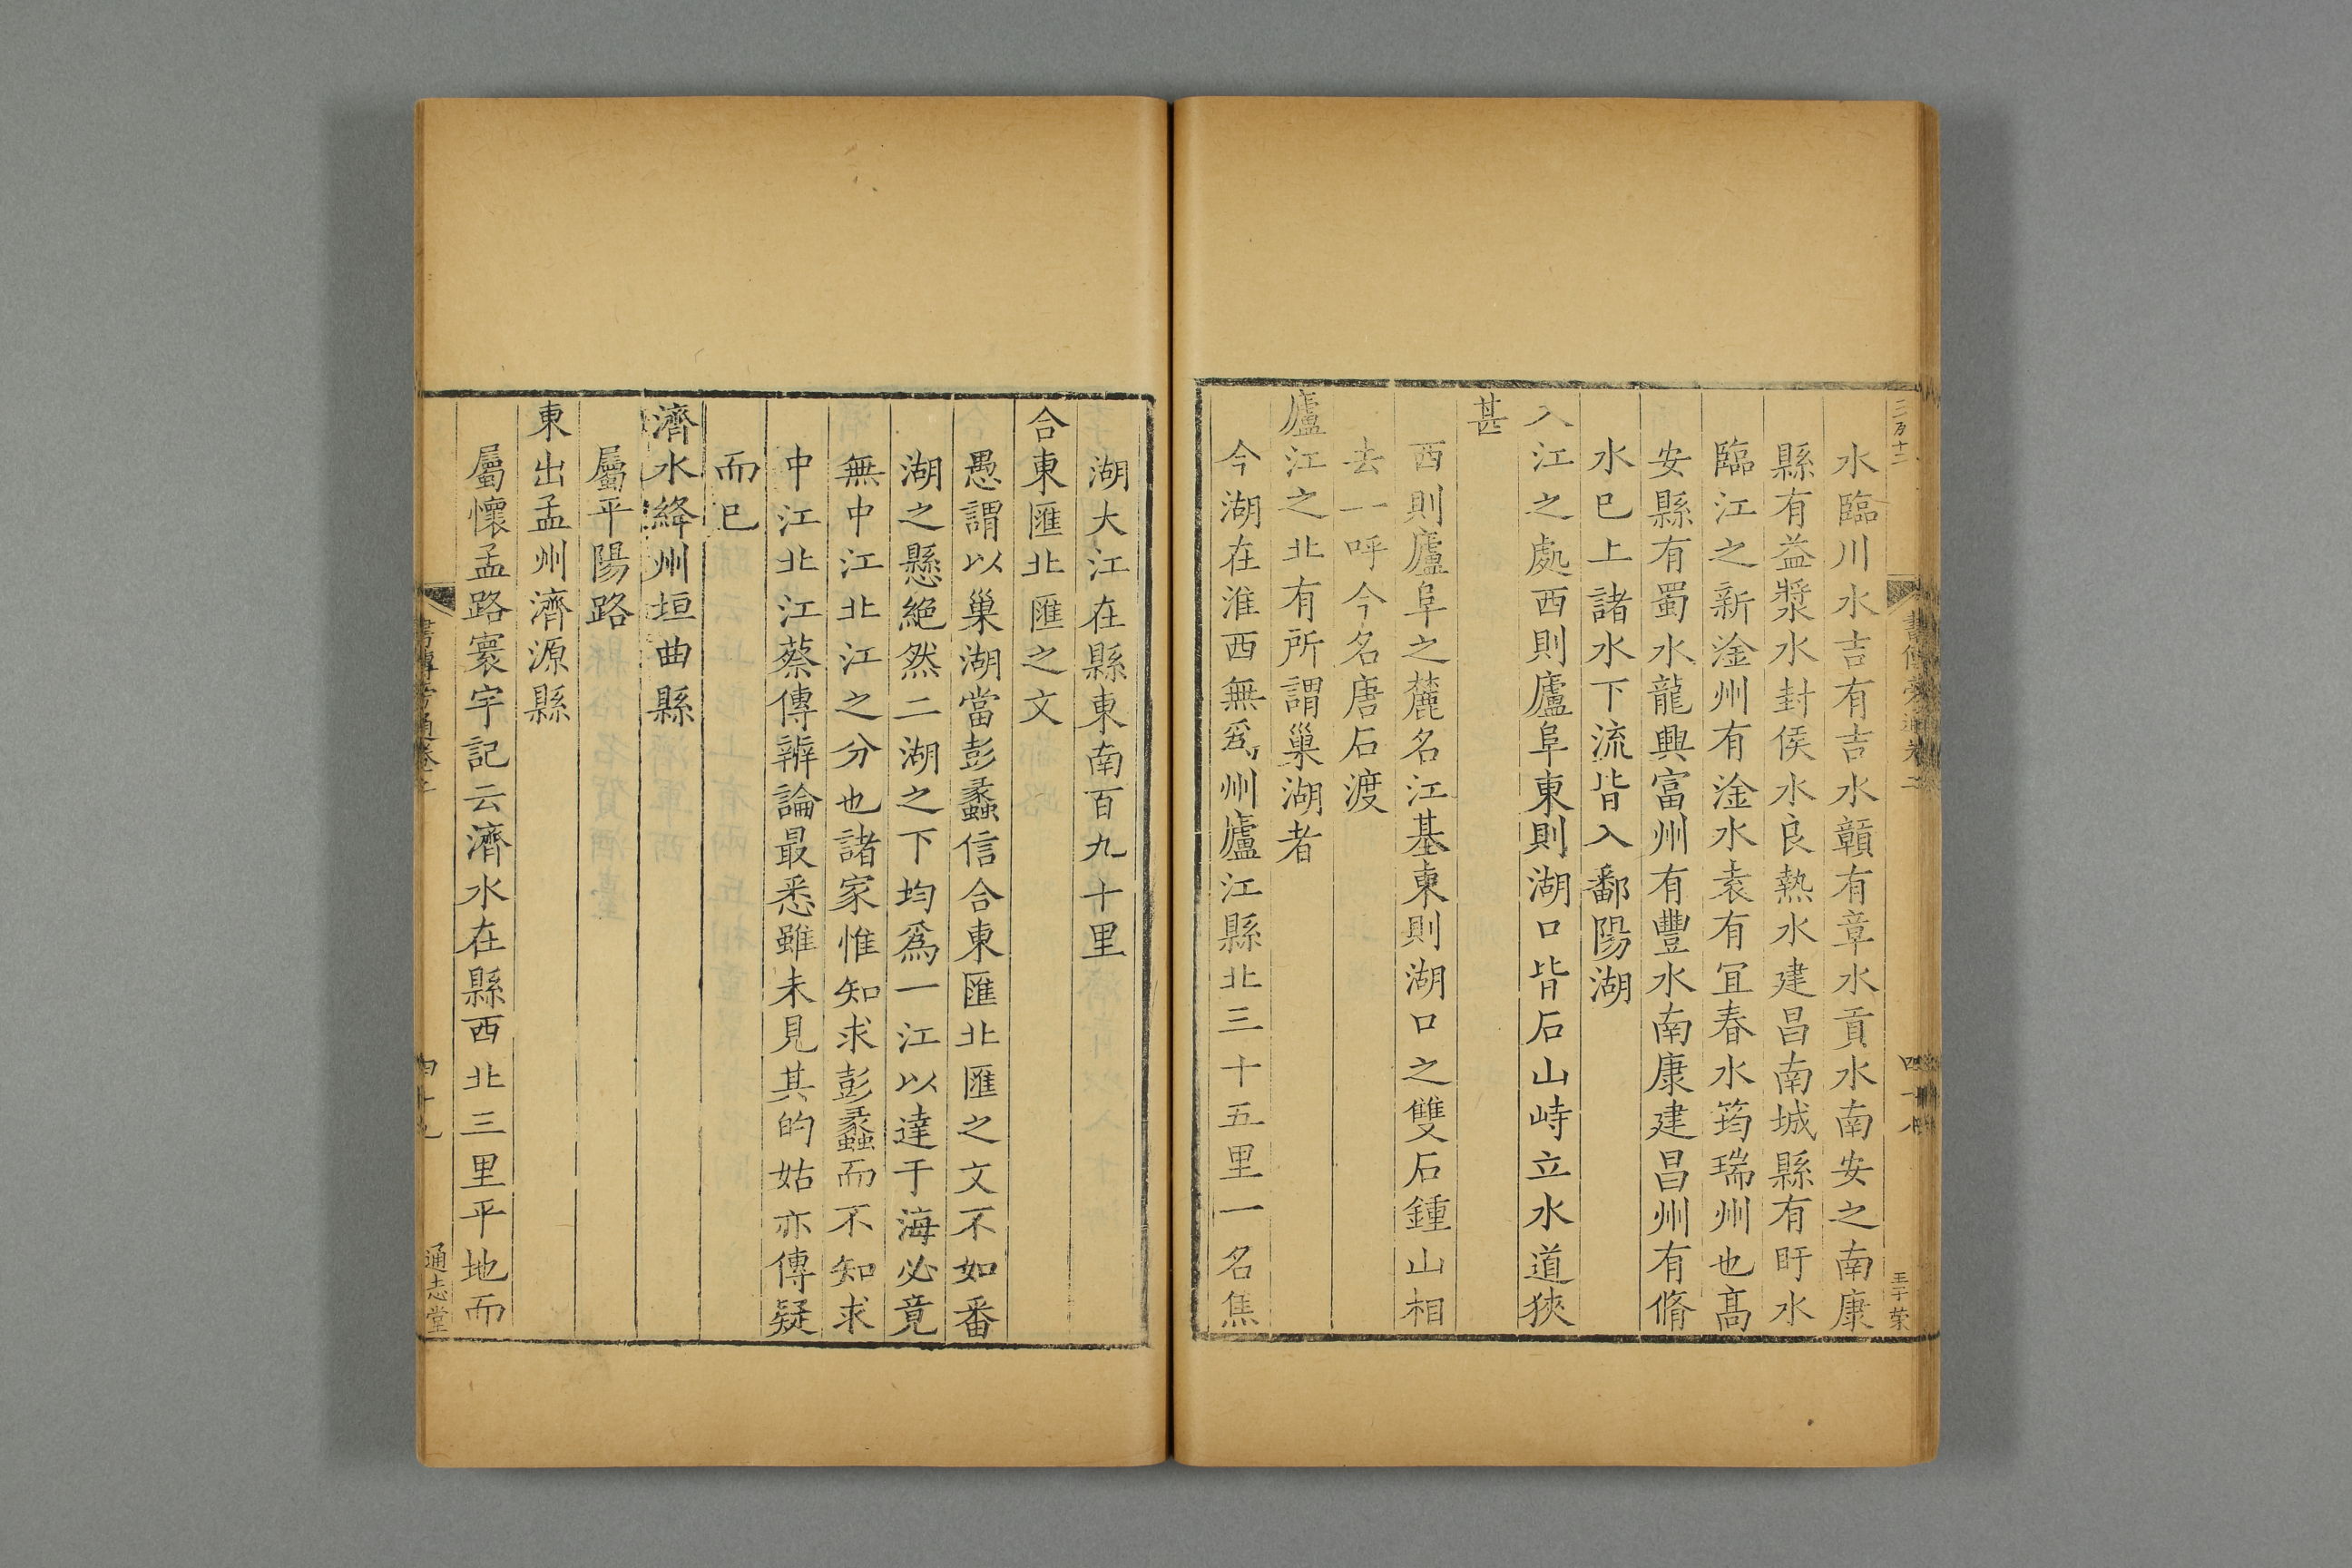 水臨川水吉有吉水贛有章水貢水南安之南康
縣有益漿水封侯水良熱水建昌南城縣有盱水
臨江之新淦州有淦水袁有宜春水筠瑞州也高
安縣有蜀水龍興富州有豐水南康建昌州有脩
水巳上諸水下流皆入鄱陽湖
入江之處西則廬阜東則湖口皆石山峙立水道狹
甚
西則廬阜之麓名江基東則湖口之雙石鍾山相
去一呼今名唐石渡
廬江之北有所謂巢湖者
今湖在淮西無爲州廬江縣北三十五里一名焦
湖大江在縣東南百九十里
合東匯北匯之文
愚謂以巢湖當彭蠡信合東匯北匯之文不如番
湖之懸絕然二湖之下均爲一江以達于海必竟
無中江北江之分也諸家惟知求彭蠡而不知求
中江北江蔡傳辨論最悉雖未見其的姑亦傳疑
而巳
濟水絳州垣曲縣
屬平陽路
東出孟州濟源縣
屬懷孟路寰宇記云濟水在縣西北三里平地而
書傳旁通卷二
四十九
通志堂